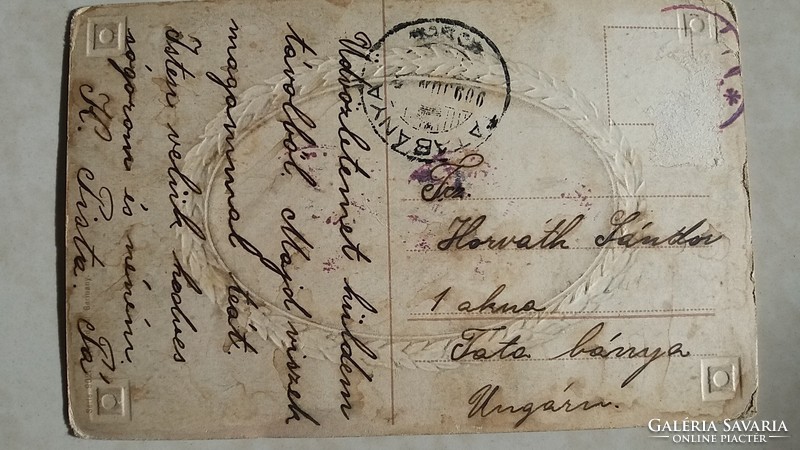 Üdvözletemet küldém
távolból Majd viszek
magammal teát
Isten velük kedves
sógorom és néném.
K. Pista.
Horváth Sándor
1 akna
Tata bánya
Ungárn.
GALÉRIA SAVARIA
ONLINE PIACTÉR